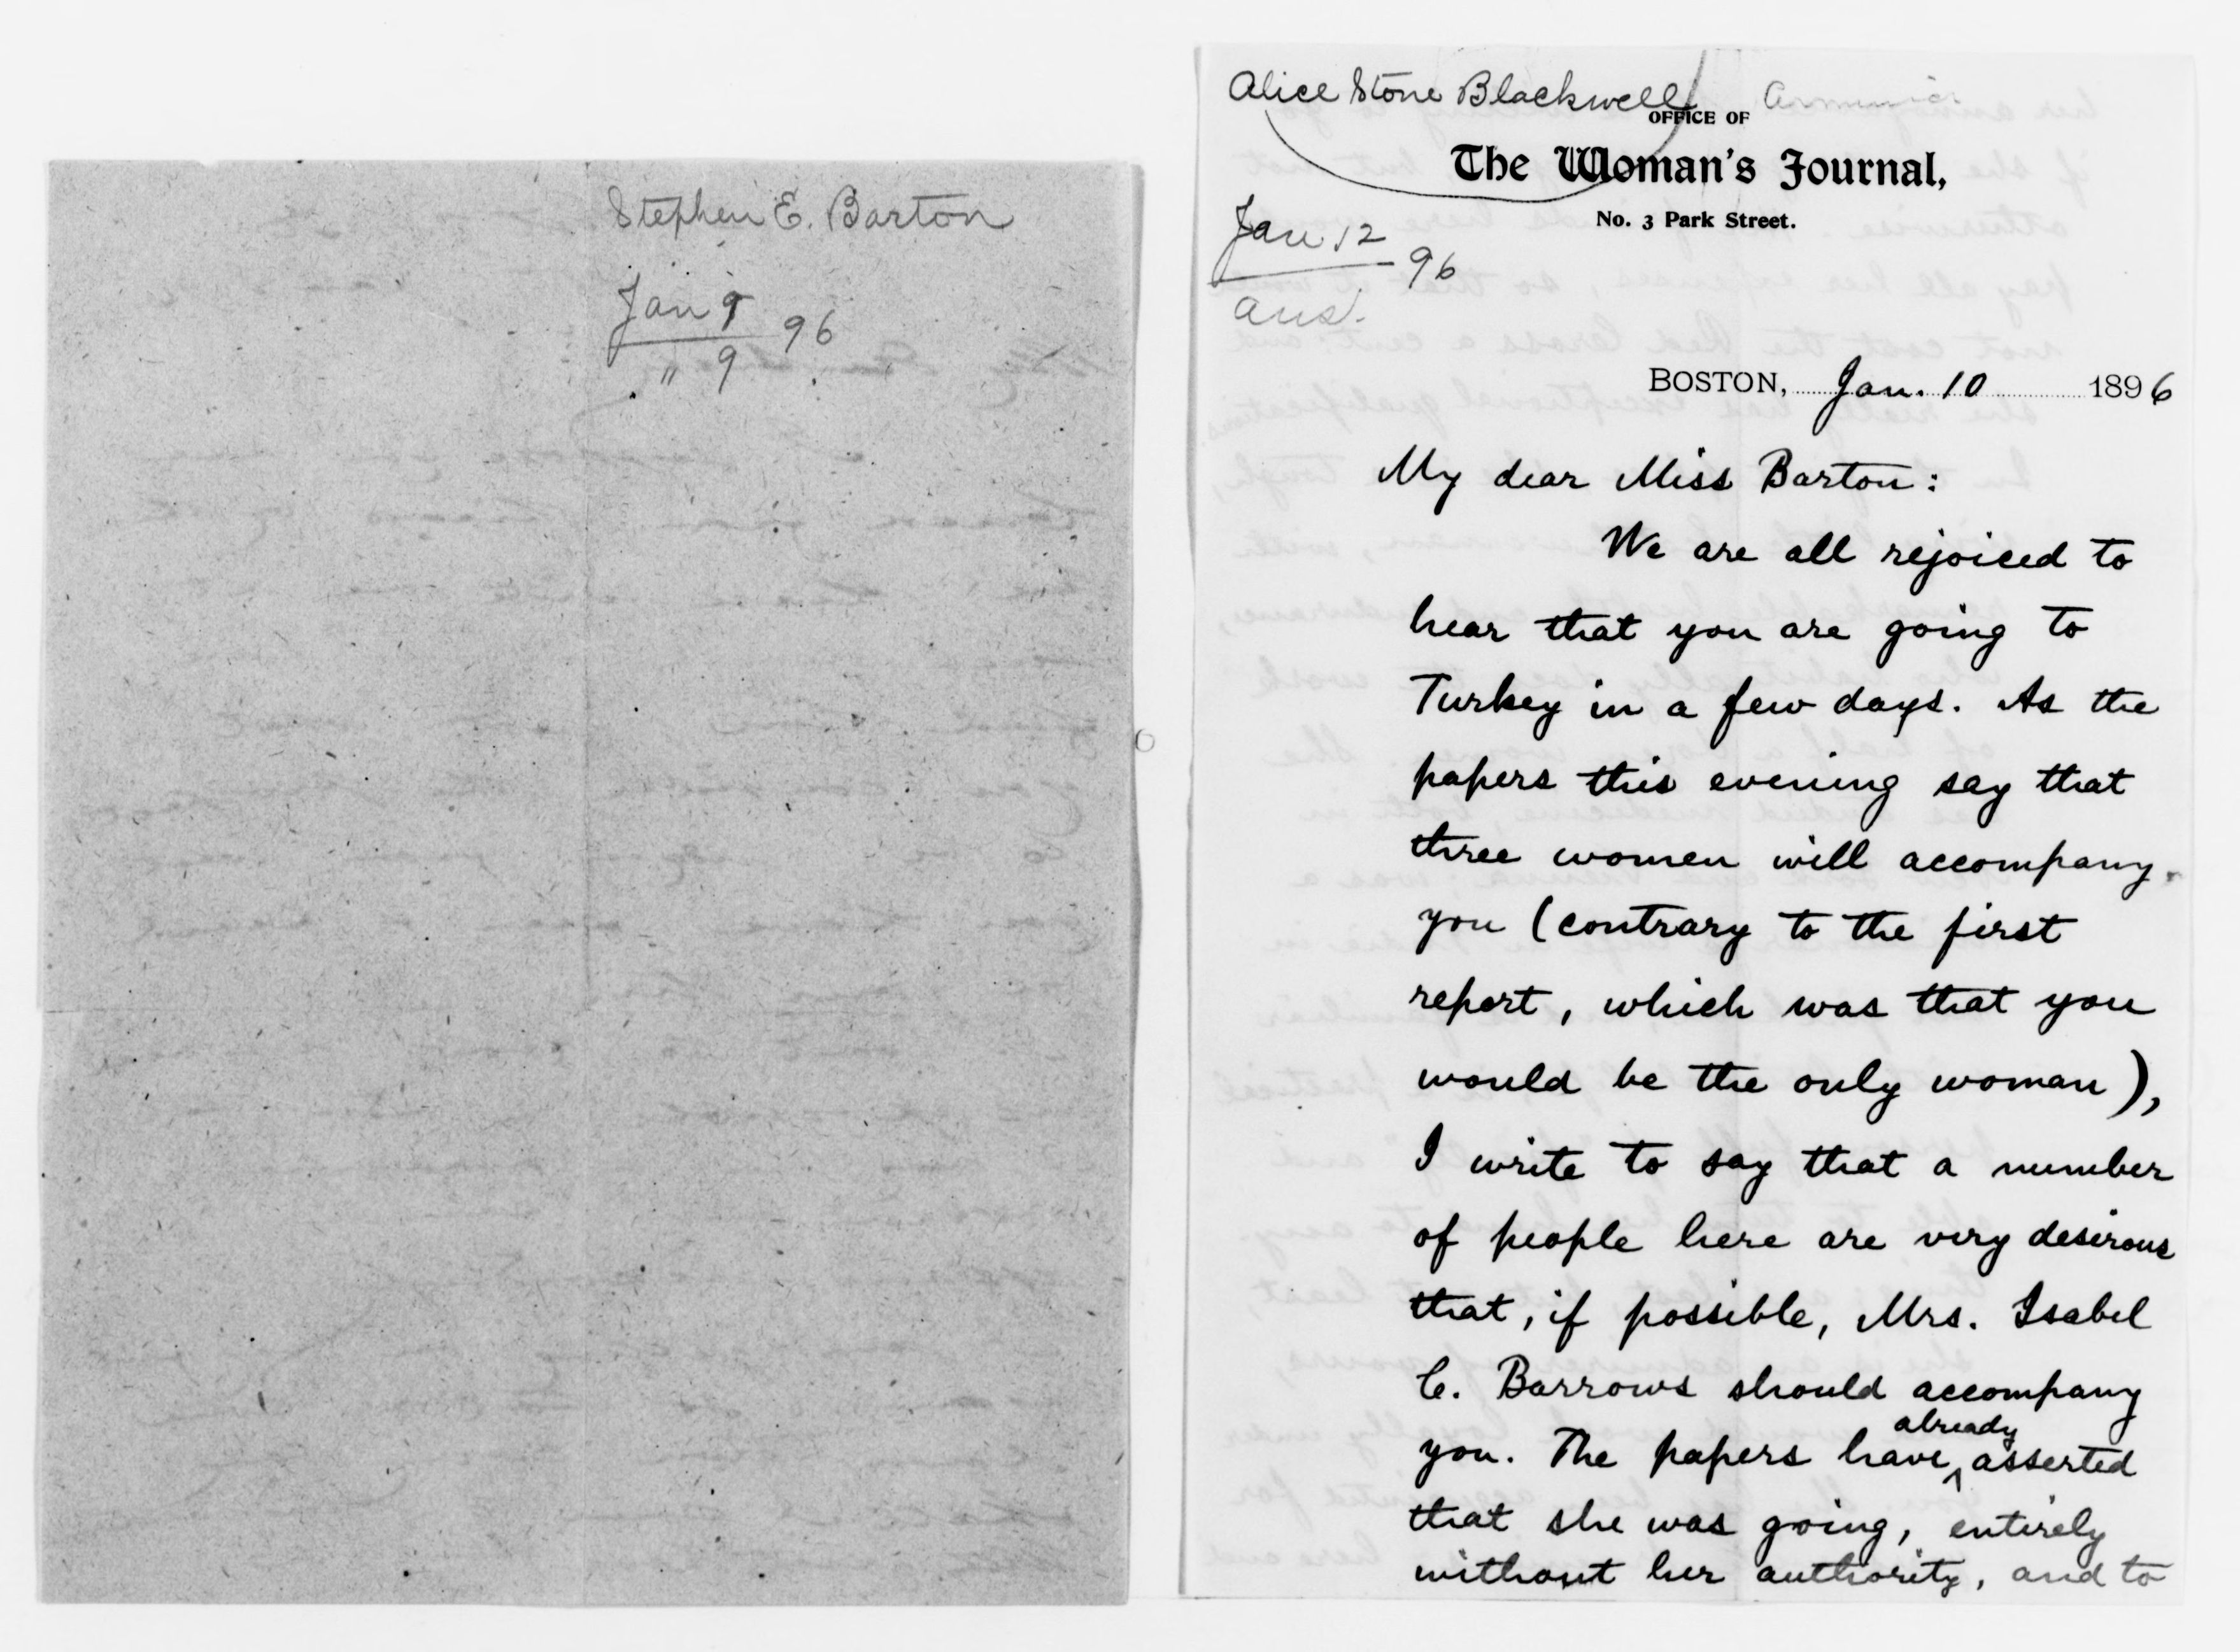 Stephen E. Barton
Jan 9
96
" 9
Alice Stone Blackwell
Armenia
OFFICE OF
The Woman's Journal,
No. 3 Park Street.
Jan 12
96
ans.
BOSTON, Jan. 10 1896
My dear Miss Barton:
We are all rejoiced to
hear that you are going to
Turkey in a few days. As the
papers this evening say that
three women will accompany
you (contrary to the first
report, which was that you
would be the only woman),
I write to say that a number
of people here are very desirous
that, if possible, Mrs. Isabel
C. Barrows should accompany
you. The papers have already asserted
that she was going, entirely
without her authority, and to